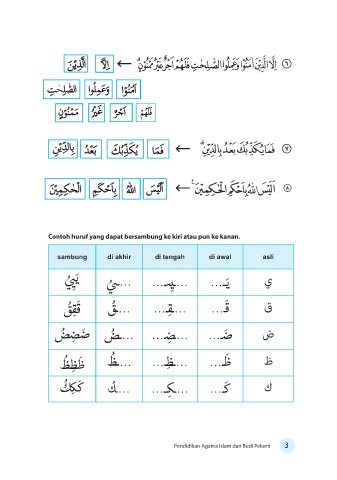 ٦ اِلَّا الَّذِيْنَ اٰمَنُوْا وَعَمِلُوا الصّٰلِحٰتِ فَلَهُمْ اَجْرٌ غَيْرُ مَمْنُوْنٍۗ ← اِلَّا الَّذِيْنَ
اٰمَنُوْا وَعَمِلُوا الصّٰلِحٰتِ
فَلَهُمْ اَجْرٌ غَيْرُ مَمْنُوْنٍ
٧ فَمَا يُكَذِّبُكَ بَعْدُ بِالدِّيْنِۗ ← فَمَا يُكَذِّبُكَ بَعْدُ بِالدِّيْنِ
٨ اَلَيْسَ اللّٰهُ بِاَحْكَمِ الْحٰكِمِيْنَ ← اَلَيْسَ اللّٰهُ بِاَحْكَمِ الْحٰكِمِيْنَ
Contoh huruf yang dapat bersambung ke kiri atau pun ke kanan.
sambung di akhir di tengah di awal asli
يَيِيُ ...ـيُ ...ـيِـ... يَـ... ي
قَقِقُ ...ـقُ ...ـقِـ... قَـ... ق
ضَضِضُ ...ـضُ ...ـضِـ... ضَـ... ض
ظَظِظُ ...ـظُ ...ـظِـ... ظَـ... ظ
كَكِكُ ...ـكُ ...ـكِـ... كَـ... ك
Pendidikan Agama Islam dan Budi Pekerti 3